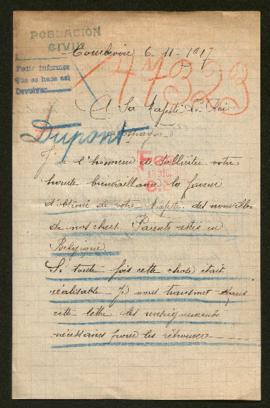 POBLACIÓN
CIVIL
Courbevoie 6-11-1917
47933
A Sa Majesté Le Roi
Dupont
J' l'honneur de solliciter votre
haute bienveillance la faveur
d'obtenir de votre Majesté des nouvelles
de nos chers Parents restés en
Belgique
Si toute fois cette chose était
réalisable Je vous transmet dans
cette lettre les renseignements
nécessaires pour les retrouver